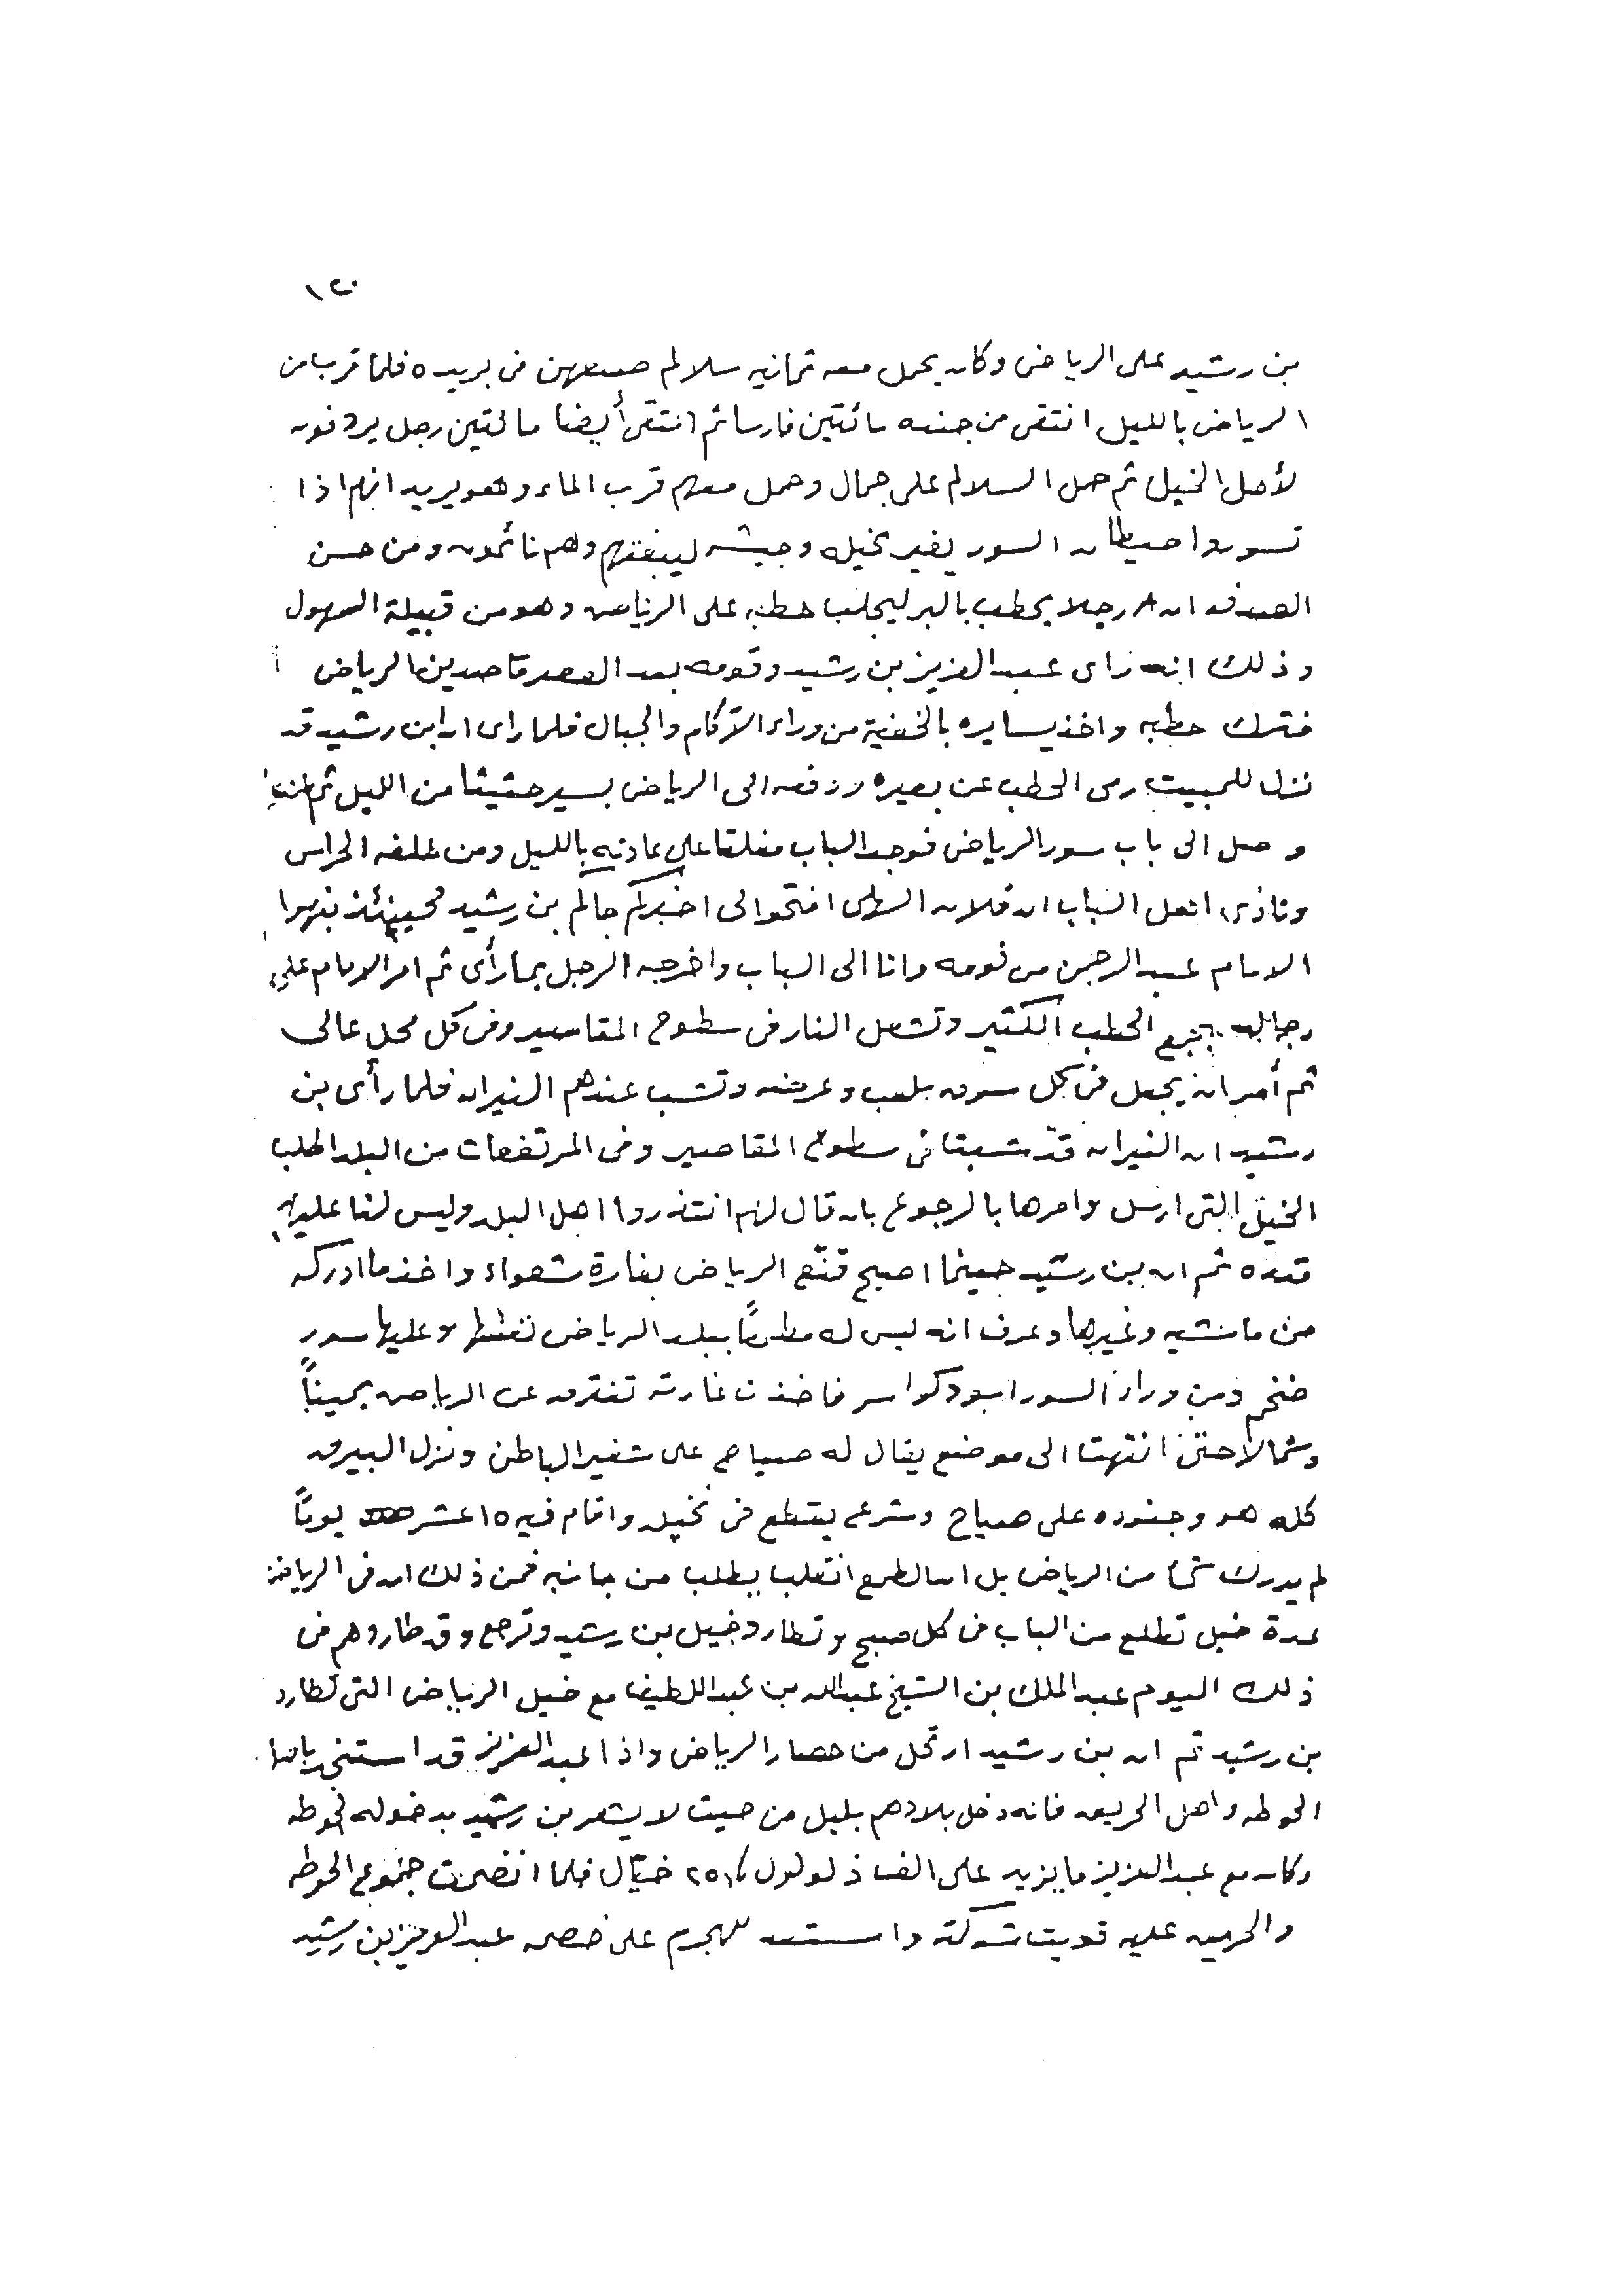 ١٢٠
بن رشيد على الرياض وكان يحمل معه ثمانيه سلالم صنعهن فى بريده فلما قرب من
الرياض بالليل انتقى من جنده مائتين فارسا ثم انتقى أيضا مائتين رجل يردفون
لأهل الخيل ثم حمل السلالم على جمال وحمل معهم قرب الماء وهو يريد انهم اذا
تسوروا حيطان السور يغير بخيله وجيشه ليبغتهم وهم نائمون ومن حسن
الصدف ان رجلا يحطب بالبر ليجلب حطبه على الرياض وهو من قبيلة السهول
وذلك انه راى عبد العزيز بن رشيد وقومه بعد العصر قاصدين الرياض
فترك حطبه واخذ يسايره بالخفية من وراء الآكام والجبال فلما راى ان ابن رشيد قد
نزل للمبيت رمى الحطب عن بعيره ودفعه الى الرياض بسير حثيثا من الليل ثم
وصل الى باب سور الرياض فوجد الباب مغلقا على عادته بالليل ومن خلفه الحراس
ونادى اهل الباب ان فلان السهلى افتحوا لى اخبركم حالم بن رشيد فحينئذ نبهوا
الامام عبد الرحمن من نومه واتا الى الباب واخبره الرجل بما رأى ثم امر الامام على
رجاله بجمع الحطب الكثير وتشعل النار فى سطوح المقاصير وفى كل محل عالى
ثم أمر ان يجعل فى كل سوق ملعب وعرضه وتشب عندهم النيران فلما رأى بن
رشيد ان النيران قد شبت فى سطوح المقاصير وفى المرتفعات من البلد اطلب
الخيل التى ارسل وامرها بالرجوع بان قال لهم انتذروا اهل البلد وليس لنا عليهم
قدره ثم ان بن رشيد حينما اصبح قنّع الرياض بغارة شعواء واخذ ما ادركه
من ماشيه وغيرها وعرف انه ليس له مطمعاً ببلد الرياض نفسها وعليها سور
ضخم ومن وراء السور اسود كواسر فاخذت غارته تفترق عن الرياض يميناً
وشمالا حتى انتهت الى موضع يقال له صياح على شفير الباطن ونزل البيرق
كله هو وجنوده على صياح وشرع يقطع فى نخيله واقام فيه ١٥ عشر يوماً
لم يدرك شىء من الرياض بل ان الطمع انقلب يطلب من جانبه فمن ذلك ان فى الرياض
عدة خيل تطلع من الباب فى كل صبح وتطارد خيل بن رشيد وترجع وقد طاردهم فى
ذلك اليوم عبد الملك بن الشيخ عبد الله بن عبد اللطيف مع خيل الرياض التى تطارد
بن رشيد ثم ان بن رشيد ارتحل من حصار الرياض واذا عبد العزيز قد استنجد باهل
الحوطه واهل الحريق فانه دخل بلادهم بليل من حيث لا يشعر بن رشيد بدخوله الحوطه
وكان مع عبد العزيز ما يزيد على الف ذلول و ٢٥٠ خيّال فلما انضمت جموع الحوطه
والحريق عليه قويت شوكته واستعد للهجوم على خصمه عبد العزيز بن رشيد